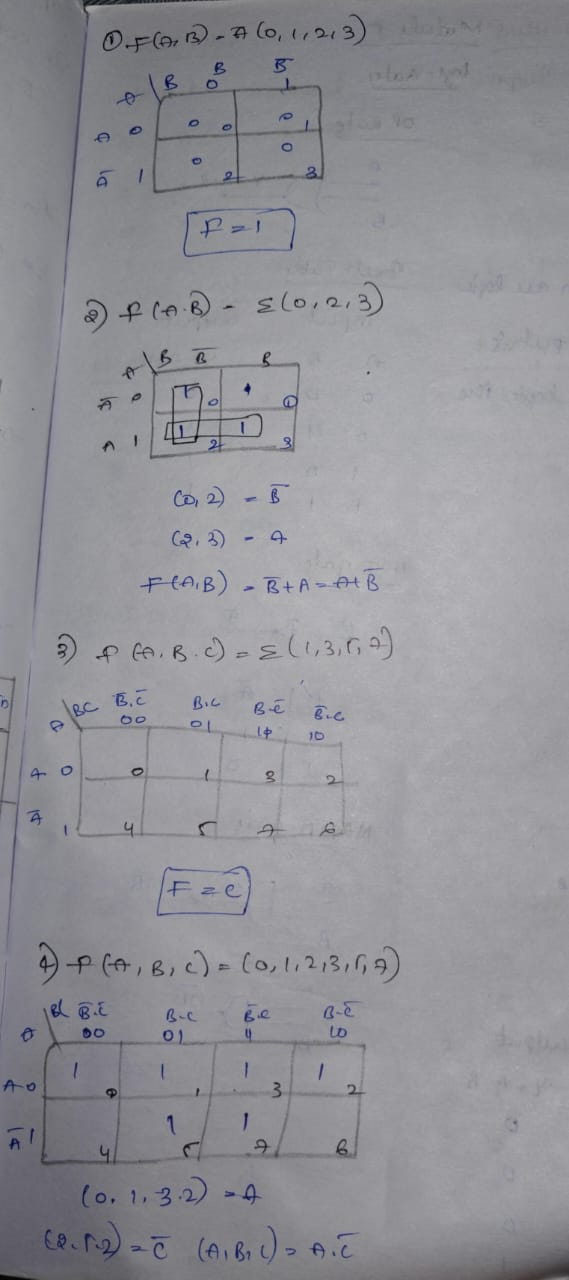 ① F(A,B) = π(0,1,2,3)
B B̄
A \ B 0 1
A 0 0 0 0 1
Ā 1 0 2 0 3
F = 1
2) f(A.B) = Σ(0,2,3)
A \ B B̄ B
Ā 0 1 0 1
A 1 1 2 1 3
(0,2) = B̄
(2,3) = A
F(A,B) = B̄+A = A+B̄
3) f(A.B.C) = Σ(1,3,5,7)
BC B̄.C̄ B.C B.C̄ B̄.C
A 00 01 10
A 0 0 1 3 2
Ā 1 4 5 7 6
F = C̄
4) f(A,B,C) = (0,1,2,3,5,7)
B̄.C̄ B.C B̄.C B.C̄
A 00 01 11 10
A 0 1 0 1 1 1 3 1 2
Ā 1 4 1 5 1 7 6
(0.1.3.2) = A
= C̄ (A,B,C) = A.C̄